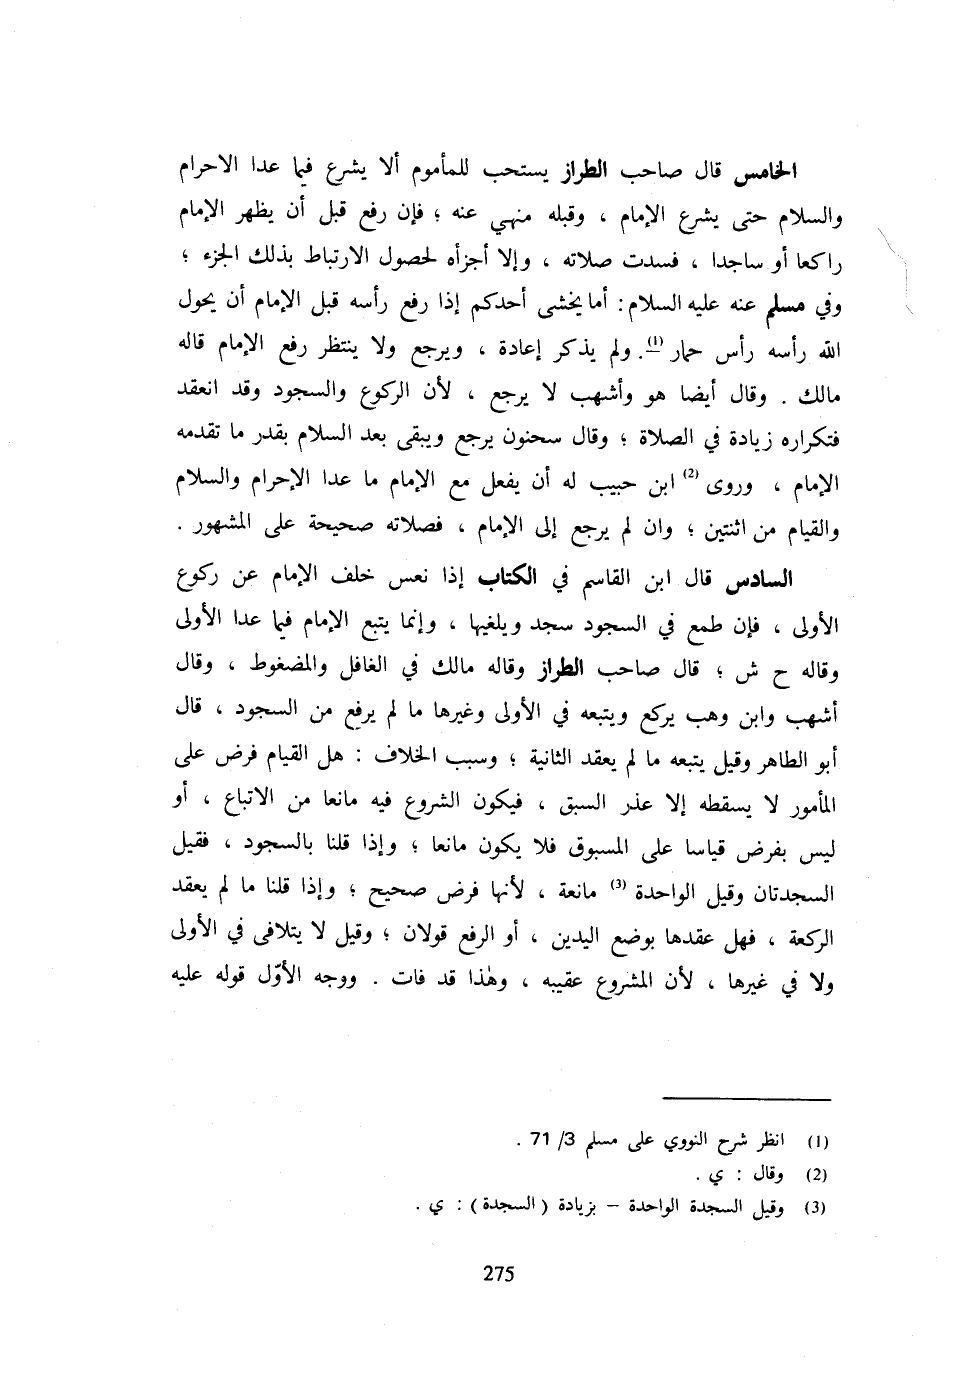 الخامس قال صاحب الطراز يستحب للمأموم ألا يشرع فيما عدا الاحرام
والسلام حتى يشرع الإمام ، وقبله منهي عنه ؛ فإن رفع قبل أن يظهر الإمام
راكعا أو ساجدا ، فسدت صلاته ، وإلا أجزأه لحصول الارتباط بذلك الجزء ؛
وفي مسلم عنه عليه السلام : أما يخشى أحدكم إذا رفع رأسه قبل الإمام أن يحول
الله رأسه رأس حمار (1). ولم يذكر إعادة ، ويرجع ولا ينتظر رفع الإمام قاله
مالك . وقال أيضا هو وأشهب لا يرجع ، لأن الركوع والسجود وقد انعقد
فتكراره زيادة في الصلاة ؛ وقال سحنون يرجع ويبقى بعد السلام بقدر ما تقدمه
الإمام ، وروى (2) ابن حبيب له أن يفعل مع الإمام ما عدا الإحرام والسلام
والقيام من اثنتين ؛ وان لم يرجع إلى الإمام ، فصلاته صحيحة على المشهور .
السادس قال ابن القاسم في الكتاب إذا نعس خلف الإمام عن ركوع
الأولى ، فإن طمع في السجود سجد ويلغيها ، وإنما يتبع الإمام فيما عدا الأولى
وقاله ح ش ؛ قال صاحب الطراز وقاله مالك في الغافل والمضغوط ، وقال
أشهب وابن وهب يركع ويتبعه في الأولى وغيرها ما لم يرفع من السجود ، قال
أبو الطاهر وقيل يتبعه ما لم يعقد الثانية ؛ وسبب الخلاف : هل القيام فرض على
المأمور لا يسقطه إلا عذر السبق ، فيكون الشروع فيه مانعا من الاتباع ، أو
ليس بفرض قياسا على المسبوق فلا يكون مانعا ؛ وإذا قلنا بالسجود ، فقيل
السجدتان وقيل الواحدة (3) مانعة ، لأنها فرض صحيح ؛ وإذا قلنا ما لم يعقد
الركعة ، فهل عقدها بوضع اليدين ، أو الرفع قولان ؛ وقيل لا يتلافى في الأولى
ولا في غيرها ، لأن المشروع عقيبه ، وهذا قد فات . ووجه الأوّل قوله عليه
(1) انظر شرح النووي على مسلم 3/ 71 .
(2) وقال : ي .
(3) وقيل السجدة الواحدة – بزيادة ( السجدة ) : ي .
275